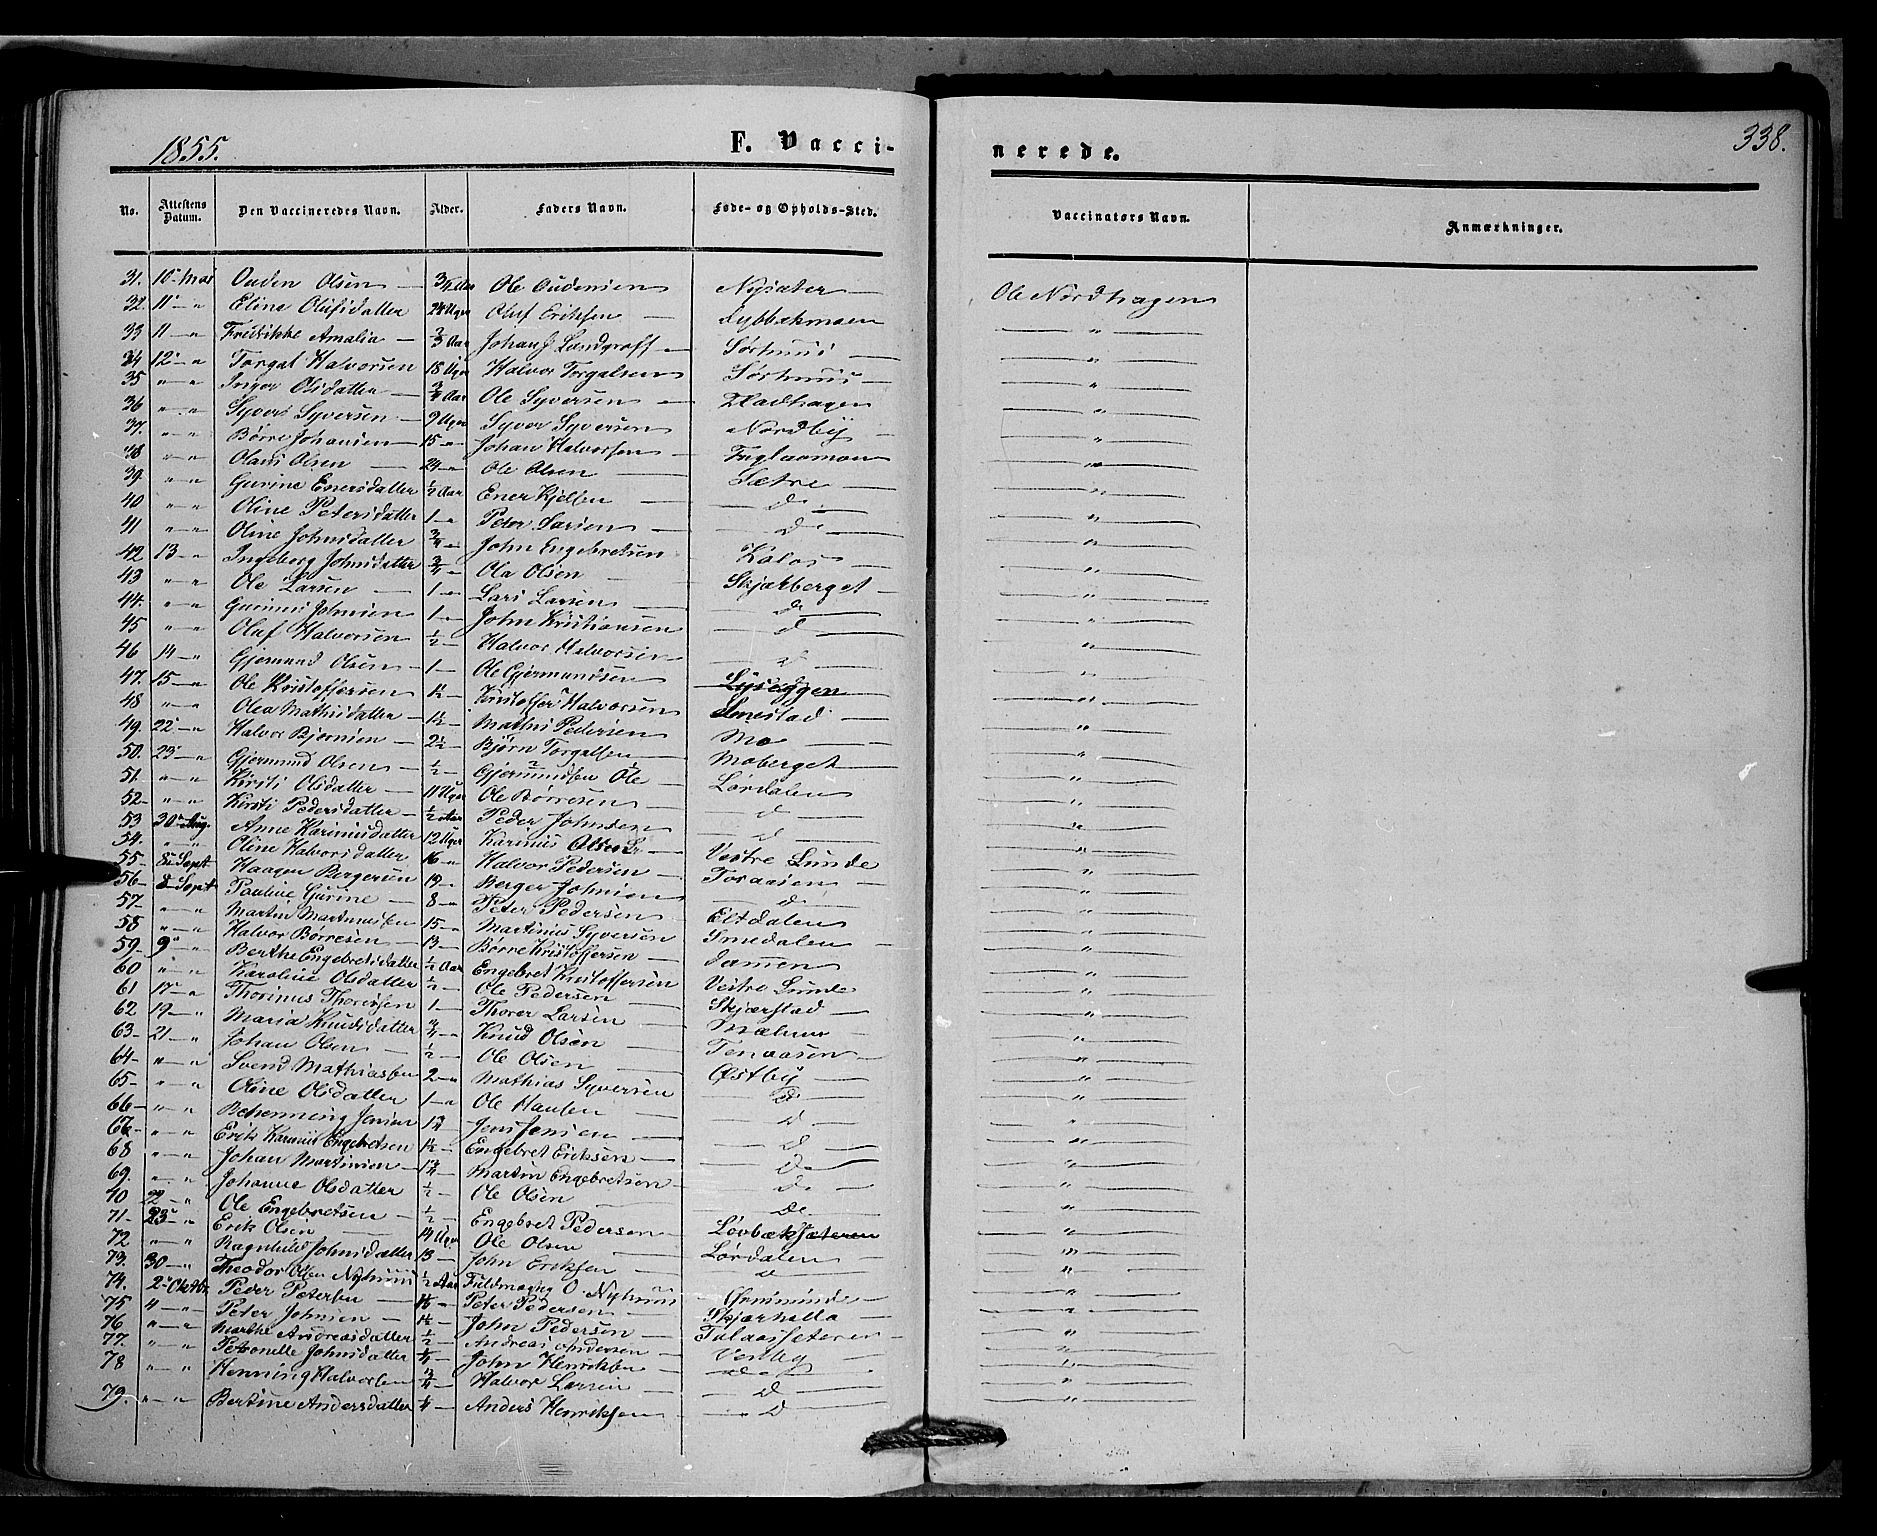 1855.
F. Vacci-
nerede.
338.
No. Attestens Datum. Den Vaccineredes Navn. Alder. Faders Navn. Føde- og Opholds-Sted. Vaccinators Navn. Anmærkninger.
31. 10 Mai Ouden Olsen — 3/4 Aar Ole Oudensen Nysæter — Ole Nordhagen
32. 11 — " Eline Olufsdatter 24 Uger Oluf Eriksen — — " —
33 11 — " Fredrikke Amalia — Aar Johan J Lundgraff — Sørhuus — — " —
34 12 — " Torgal Halvorsen 18 Uger Halvor Torgalsen Sørhuus — — " —
35 " — " Inger Olsdatter — 3/4 Aar Ole Syversen — — " —
36 " — " Syver Syversen — 9 Uger Syver Syversen Nordby — — " —
37. " — " Børre Johansen — 15 — " Johan Halvorsen — — " —
38 " — " Olaus Olsen — 24 — " Ole Olsen — Sætre — — " —
39 " — " Gurine Enersdatter 1/2 Aar Ener Kjelsen — D — — " —
40 " — " Oline Petersdatter 1 — " Peter Larsen — D — — " —
41 " — " Oline Johnsdatter 3/4 — " John Engebretsen — " —
42 13 — " Ingeborg Johnsdatter 3/4 — " Ola Olsen — — " —
43 " — " Ole Larsen — 1 — " Lars Larsen — Skjærberget — — " —
44. " — " Gunnus Johnsen 1 — " John Kristiansen D — — " —
45 " — " Oluf Halvorsen 1/2 — Halvor Halvorsen D — — " —
46 14 — " Gjermund Olsen — 1 — Ole Gjermundsen D — — " —
47. 15 — " Ole Kristoffersen 1 1/2 — Kristoffer Halvorsen Lyseggen — " —
48 " — " Olea Mathisdatter — 1 1/2 — Mathis Pedersen Smestad — — " —
49. 22 — " Halvor Bjørnsen — 2 1/2 — Bjørn Torgalsen — Mo — — " —
50. 23 — " Gjermund Olsen — 1/2 — Gjermundsen Ole — Moberget — — " —
51. " — " Kirsti Olsdatter — 11 Uger Ole Børresen — Lørdalen — " —
52 — " — " Kirsti Pedersdatter — 1/2 Aar Peder Johnsen — D — — " —
53 30 Aug. Anne Karinusdatter 12 Uger Karinus Olsen — D — — " —
54. " — " Oline Halvorsdatter 16 — " Halvor Pedersen — Vestre Lunde — " —
55 — Sept Haagen Bergersen 19 — " Berger Johnsen — — " —
56 — 8 Sept Pauline Gurine — 8 — " Peter Pedersen — D — — " —
57 — " — " Martin Martinussen 15 — " Martinus Syversen Eltdalen — " —
58 " — " Halvor Børresen — 13 — Børre Kristoffersen — Smedalen — — " —
59. 9 — " Berthe Engebretsdatter 1/2 Aar Engebret Kristoffersen — " —
60 " — " Karoline Olsdatter 1/2 — Ole Pedersen — Vestre Lunde — " —
61 17 — " Thorinus Thorersen 1 — Thorer Larsen — Skjærstad — — " —
62 19 — " Maria Knudsdatter 3/4 — " Knud Olsen — — " —
63 — 21 — " Johan Olsen — 1/2 — Ole Olsen — — " —
64 — " — " Svend Mathiassen 2 — " Mathias Syversen Østby — — " —
65 — " — " Oline Olsdatter 1 — " Ole Hansen — D — — " —
66 — " — " Jensen Jens Jensen — D — — " —
67 — " — " Erik Karinius Engebretsen 1 1/2 — Engebret Eriksen — D — — " —
68 " — " Johan Martinsen — Martin Engebretsen — D — — " —
69. " — " Johanne Olsdatter 1/2 — Ole Olsen — D — — " —
70 22 — " Ole Engebretsen — 1/2 — Engebret Pedersen — — " —
71 — 23 — " Erik Olsen — 14 Uger Ole Olsen — Lørdalen — — " —
72 " — " Ragnhild Johnsdatter 13 — John Eriksen — D — — " —
73. 30 — " Theodor Olsen Nyhuus 1/2 Aar Fuldmægtig O. Nyhuus — " —
74. 2 Oktbr. Peder Petersen — Peter Pedersen — — " —
75 4 — " Peter Johnsen — 1 1/2 — John Pedersen — — " —
76 " — " Marthe Andreasdatter 1/2 — Andreas Andersen — Vestby — — " —
77. " — " Petronelle Johnsdatter — John Henriksen — D — — " —
78 " — " Henning Halvorsen 3/4 — Halvor Larsen — D — — " —
79. " — " Bertine Andersdatter 1/4 — Anders Henriksen — D — " —